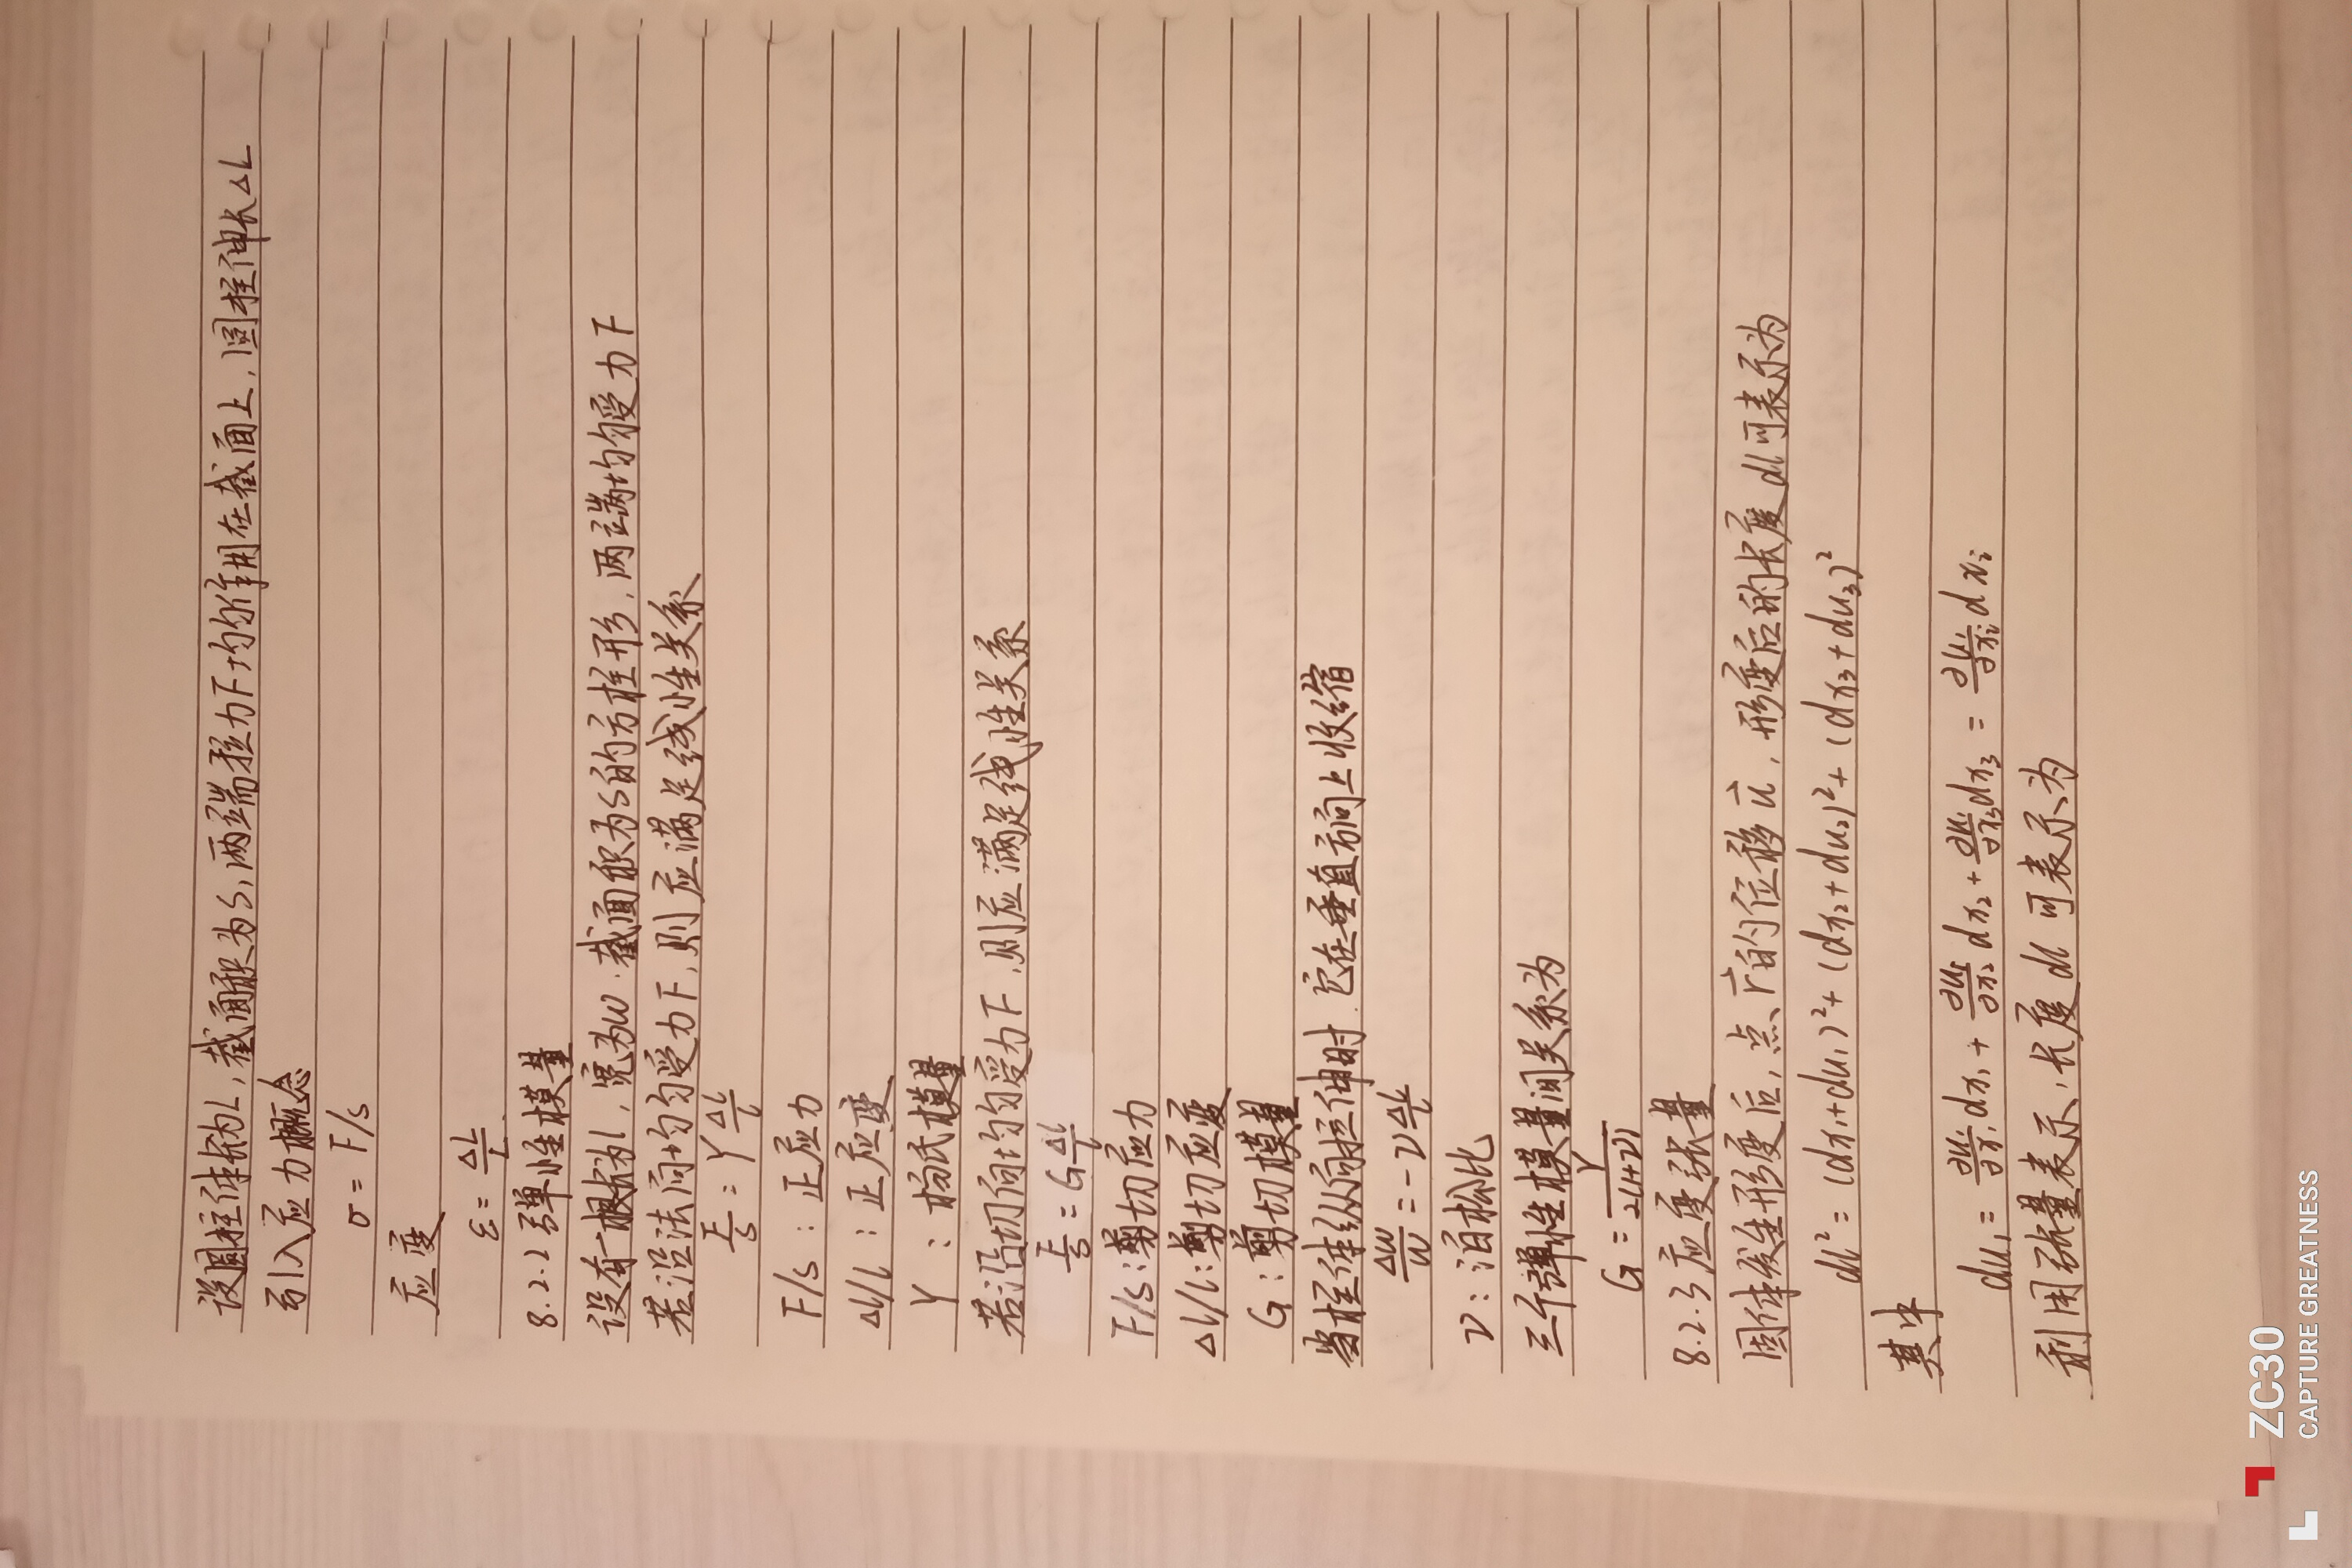 设圆柱体长为L,截面积为S,两端拉力F均匀作用在截面上,圆柱伸长ΔL
引入应力概念
σ = F/S
应变
ε = ΔL/L
8.2.2 弹性模量
设有一根长为l,宽为w.截面积为S的方柱形,两端均受力F
若沿法向均匀受力F,则应满足线性关系
F/S = Y Δl/l
F/S:正应力
Δl/l:正应变
Y:杨氏模量
若沿切向均匀受力F,则应满足线性关系
F/S = G Δl/l
F/S:剪切应力
Δl/l:剪切应变
G:剪切模量
当柱体纵向拉伸时.它在垂直方向上收缩
Δw/w = -ν Δl/l
ν:泊松比
三个弹性模量间关系为
G = Y/2(1+ν)
8.2.3 应变张量
固体发生形变后,点r⃗的位移u⃗,形变后的长度dl可表示为
dl² = (dx₁+du₁)²+(dx₂+du₂)²+(dx₃+du₃)²
其中
du₁ = ∂u₁/∂x₁ dx₁ + ∂u₁/∂x₂ dx₂ + ∂u₁/∂x₃ dx₃ = ∂u₁/∂xᵢ dxᵢ
利用张量表示,长度dl可表示为
ZC30
CAPTURE GREATNESS